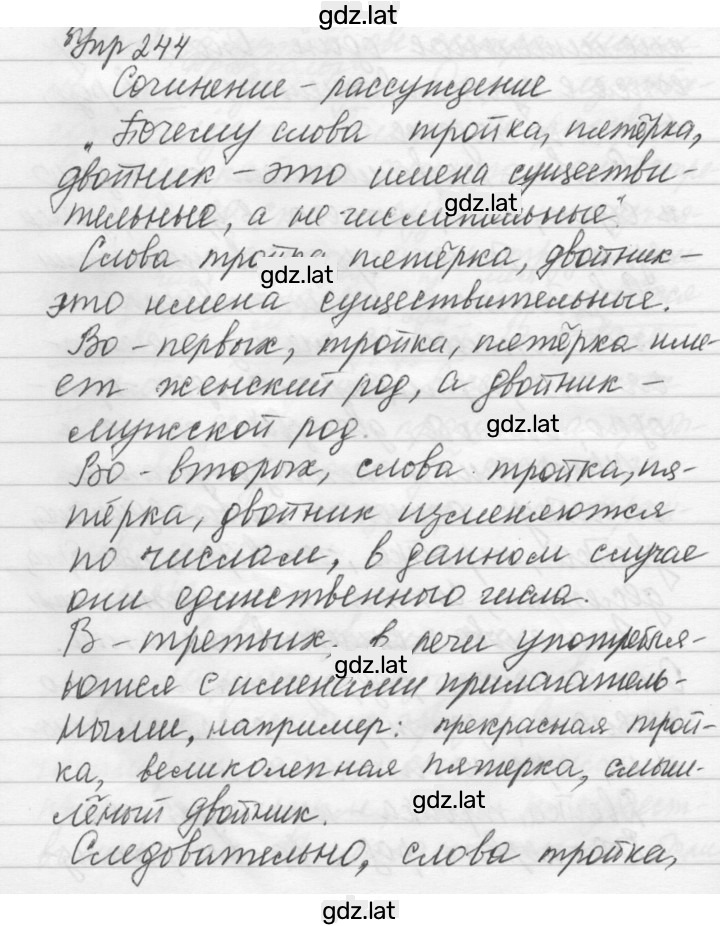 gdz.lat
Упр 244
Сочинение - рассуждение
„Почему слова тройка, пятёрка,
двойник - это имена существи-
тельные, а не числительные"
gdz.lat
Слова тройка, пятёрка, двойник -
gdz.lat
это имена существительные.
Во - первых, тройка, пятёрка име-
ет женский род, а двойник -
gdz.lat
мужской род.
Во - вторых, слова тройка, пя-
тёрка, двойник изменяются
по числам, в данном случае
они единственного числа.
В - третьих, в речи употребля-
gdz.lat
ются с именами прилагатель-
ными, например: прекрасная трой-
ка, великолепная пятерка, смыш-
gdz.lat
лёный двойник.
Следовательно, слова тройка,
gdz.lat